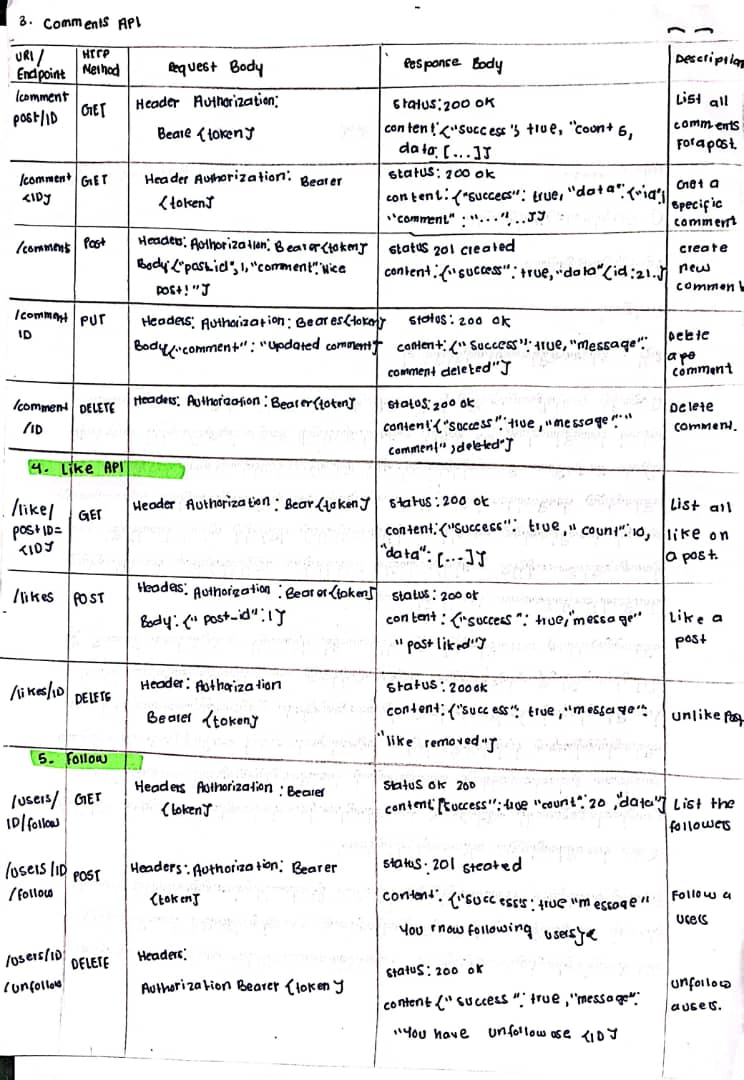 3. Comments API
URI / Endpoint | HTTP Method | Request Body | Response Body | Description
/comment post/ID | GET | Header Authorization: Beare {token} | status: 200 ok content: {"success"} true, "count 6, data: [...]} | List all comments for a post.
/comment {ID} | GET | Header Authorization: Bearer {token} | status: 200 ok content: {"success": true, "data": {"id"} "comment": "...."...}} | Get a specific comment
/comment | Post | Headers: Authorization: Bearer {token} Body {"post id", 1, "comment": "Nice post!"} | status 201 created content: {"success": true, "data" {id: 21.} | create new comment
/comment ID | PUT | Headers: Authorization: Beares {token} Body {"comment": "Updated comment} | status: 200 ok content: {"Success": true, "message": comment deleted"} | Delete a po comment
/comment /ID | DELETE | Headers: Authorization: Bearer {token} | status: 200 ok content: {"success": true, "message": "" comment" ; deleted"} | Delete comment.
4. Like API
/like/ post ID= {ID} | GET | Header Authorization: Bear {token} | status: 200 ok content: {"success": true, "count": 10, "data": [...]} | List all like on a post.
/likes | POST | Headers: Authorization: Bearer {token} Body: {"post_id": 1} | status: 200 ok content: {"success": true, "message" "post liked"} | Like a post
/likes/ID | DELETE | Header: Authorization Bearer {token} | status: 200 ok content: {"success": true, "message": "like removed"} | unlike Post
5. Follow
/users/ ID/follow | GET | Headers Authorization: Bearer {token} | Status ok 200 content: ["success": true "count": 20, "data"} | List the followers
/users/ID /follow | POST | Headers: Authorization: Bearer {token} | status: 201 steated content: {"success: true "message" You r now following users} | Follow a users
/users/ID /unfollow | DELETE | Headers: Authorization Bearer {token} | status: 200 ok content {"success": true, "message": "You have unfollow use {ID} | unfollow a users.